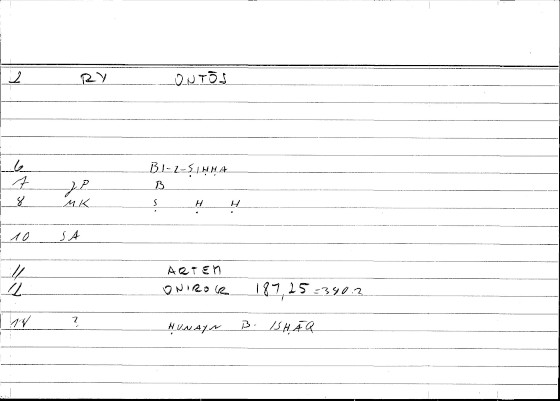 2 RY ONTŌS
6 BI-L-ṢIḤḤA
7 JP B
8 MK Ṣ Ḥ Ḥ
10 SA
11 ARTEM
12 ONIROCR 187,15=340.2
14 ? ḤUNAYN B. ISḤĀQ